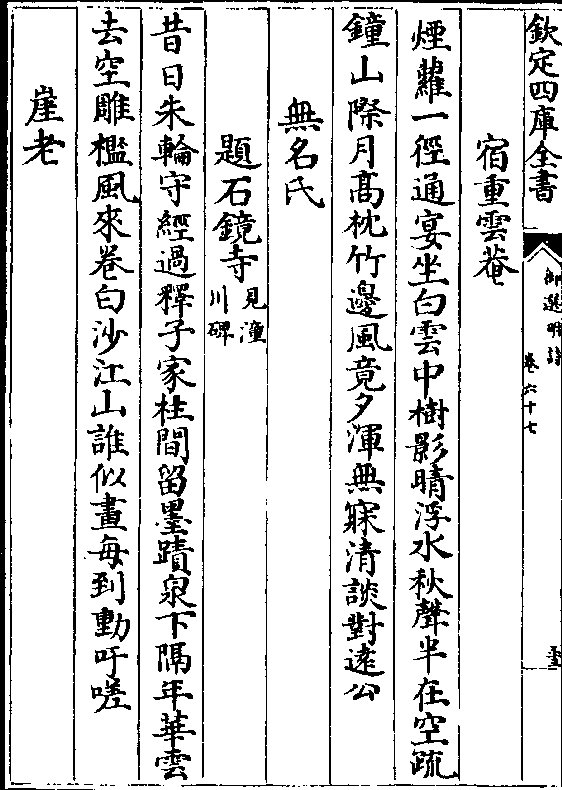 欽定四庫全書
御選明詩
卷六十七
宿重雲菴
煙蘿一徑通宴坐白雲中樹影晴浮水秋聲半在空疏
鐘山際月高枕竹邊風竟夕渾無寐清談對遠公
無名氏
題石鏡寺見潼川碑
昔日朱輪守經過釋子家柱間留墨蹟泉下隔年華雲
去空雕檻風來卷白沙江山誰似畫每到動吁嗟
崖老